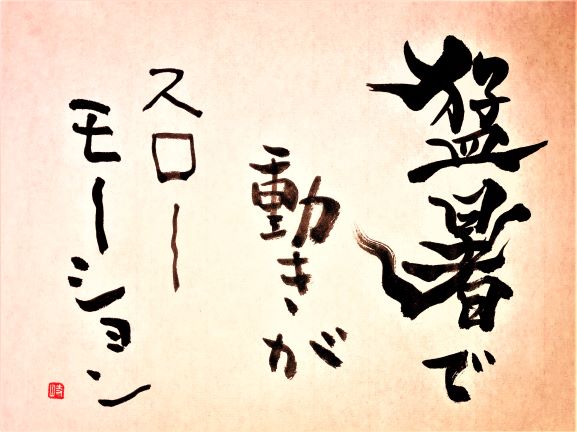 猛暑で
動きが
スロー
モーション